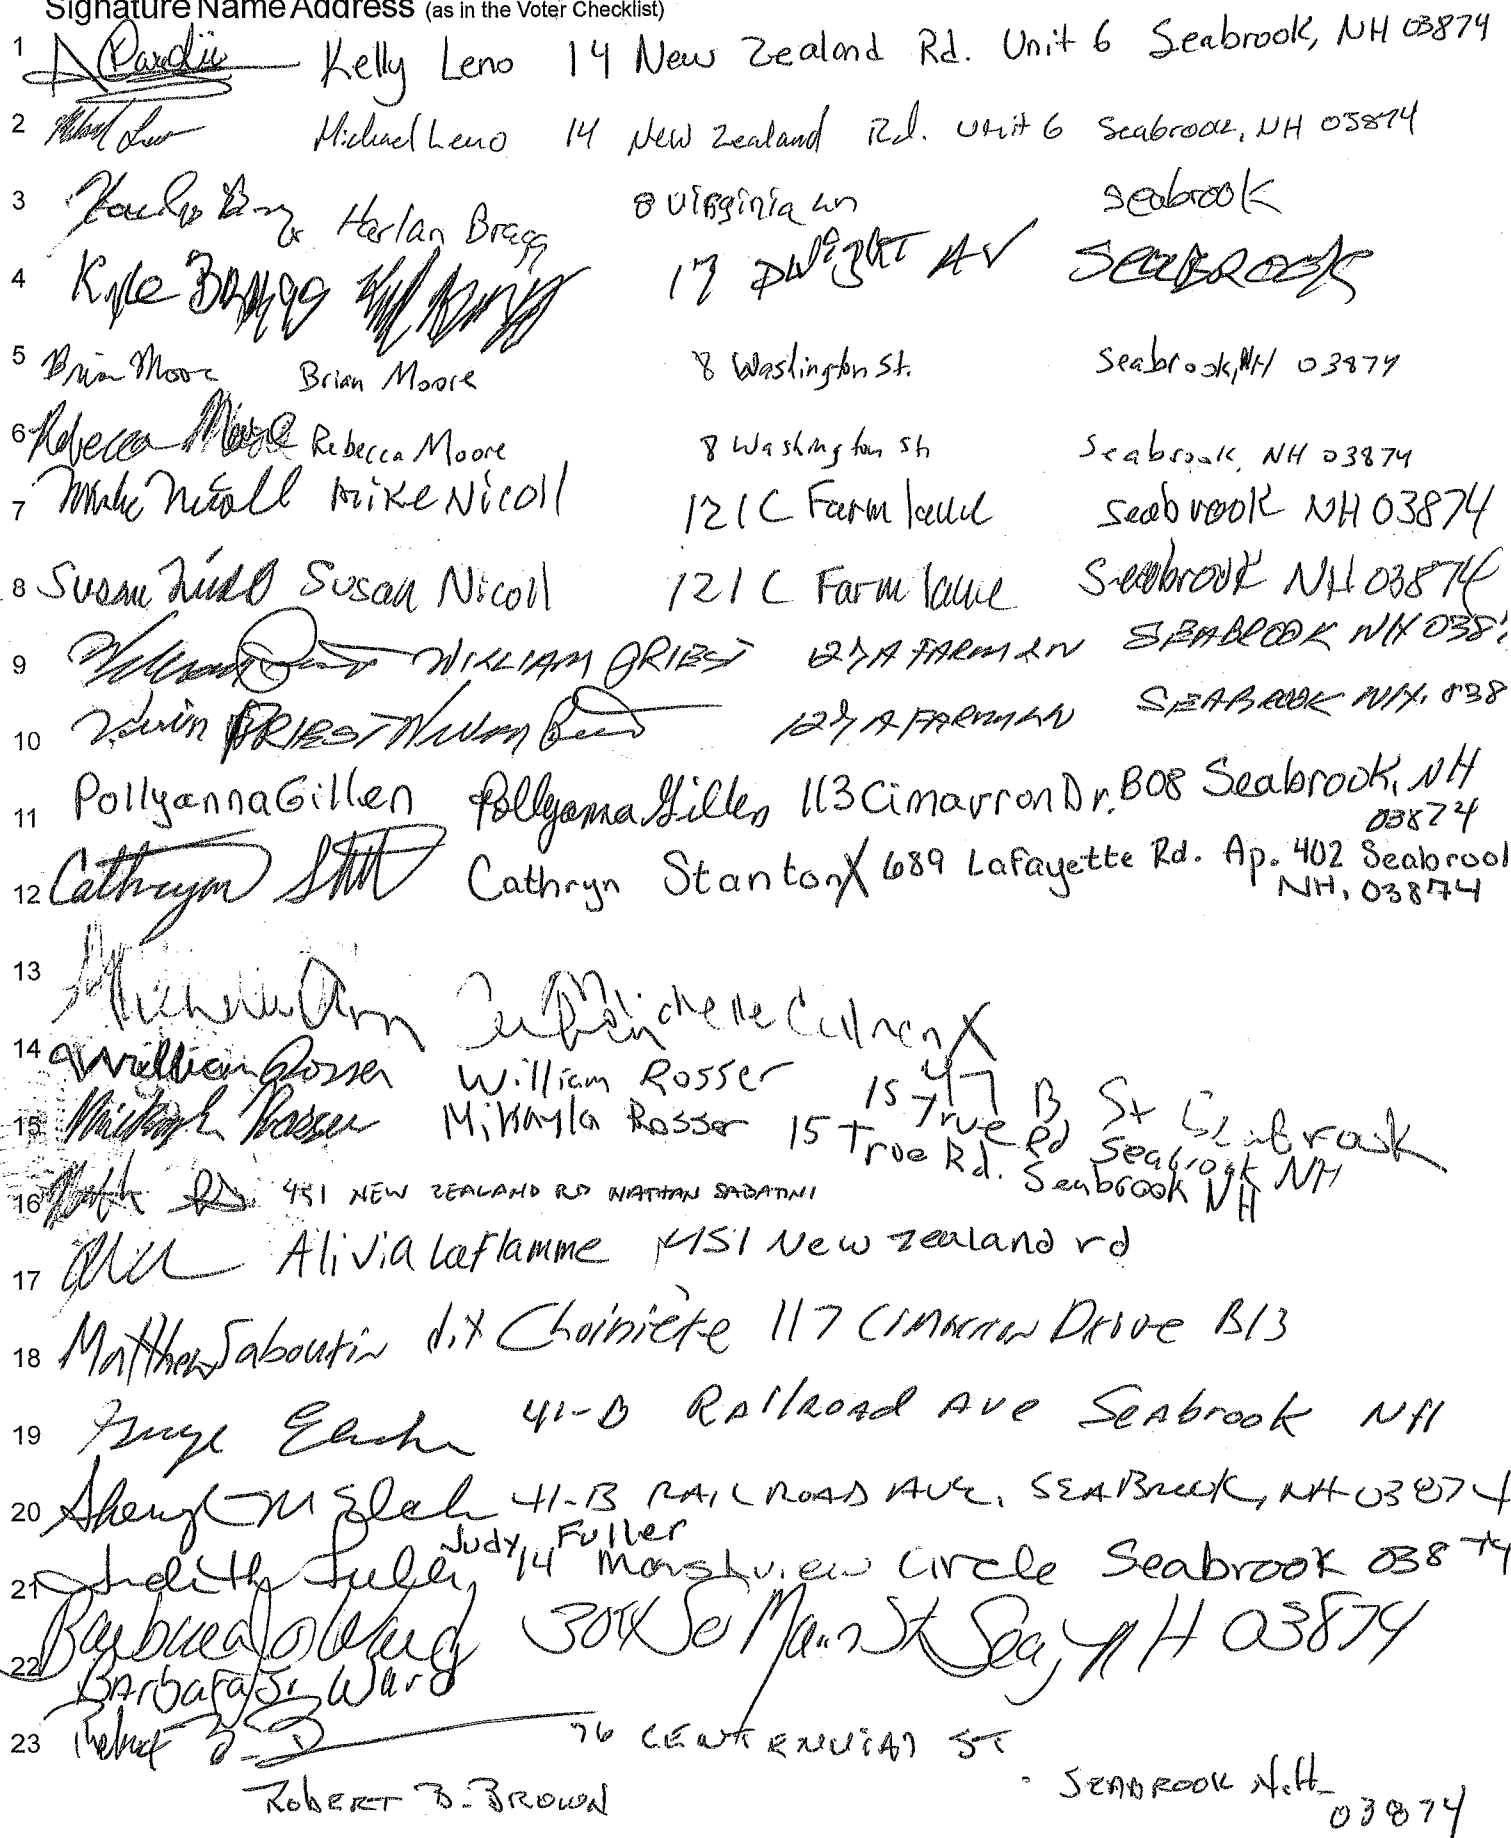 Signature Name Address (as in the Voter Checklist)
1 Kelly Leno 14 New Zealand Rd. Unit 6 Seabrook, NH 03874
2 Michael Leno 14 New Zealand Rd. Unit 6 Seabrook, NH 03874
3 Harlan Bragg 8 Virginia Ln Seabrook
4 Kyle Bragg 17 Dwight AV SEABROOK
5 Brian Moore Brian Moore 8 Washington St. Seabrook, NH 03874
6 Rebecca Moore Rebecca Moore 8 Washington St Seabrook, NH 03874
7 Mike Nicoll Mike Nicoll 121C Farm lane Seabrook NH 03874
8 Susan Nicoll Susan Nicoll 121C Farm lane Seabrook NH 03874
9 WILLIAM PRIEST 127A FARM LN SEABROOK NH 038
10 PRIEST 127A FARM LN SEABROOK NH. 038
11 Pollyanna Gillen Pollyanna Gillen 113 Cimarron Dr. B08 Seabrook, NH
03874
12 Cathryn Cathryn Stanton X 689 Lafayette Rd. Ap. 402 Seabrook
NH, 03874
13 Michelle Ann Michelle Cullnen X
47 B St Seabrook
14 William Rosser William Rosser 15 True Rd Seabrook NH
15 Mikayla Rosser Mikayla Rosser 15 True Rd. Seabrook NH
16 451 NEW ZEALAND RD NATHAN SABATINI
17 Alivia Laflamme 451 New Zealand rd
18 Matthew Sabourin dit Choiniere 117 Cimarron Drive B13
19 41-B Railroad Ave Seabrook NH
20 Sheryl M 41-B RAILROAD AVE. SEABROOK, NH 03874
Judy Fuller
21 Judith Fuller 14 Marshview Circle Seabrook 03874
22 Barbara Jo Ward So Main St Sea, NH 03874
Barbara J. Ward
23 Robert B. 76 CENTENNIAL ST
ROBERT B. BROWN SEABROOK N.H.
03874